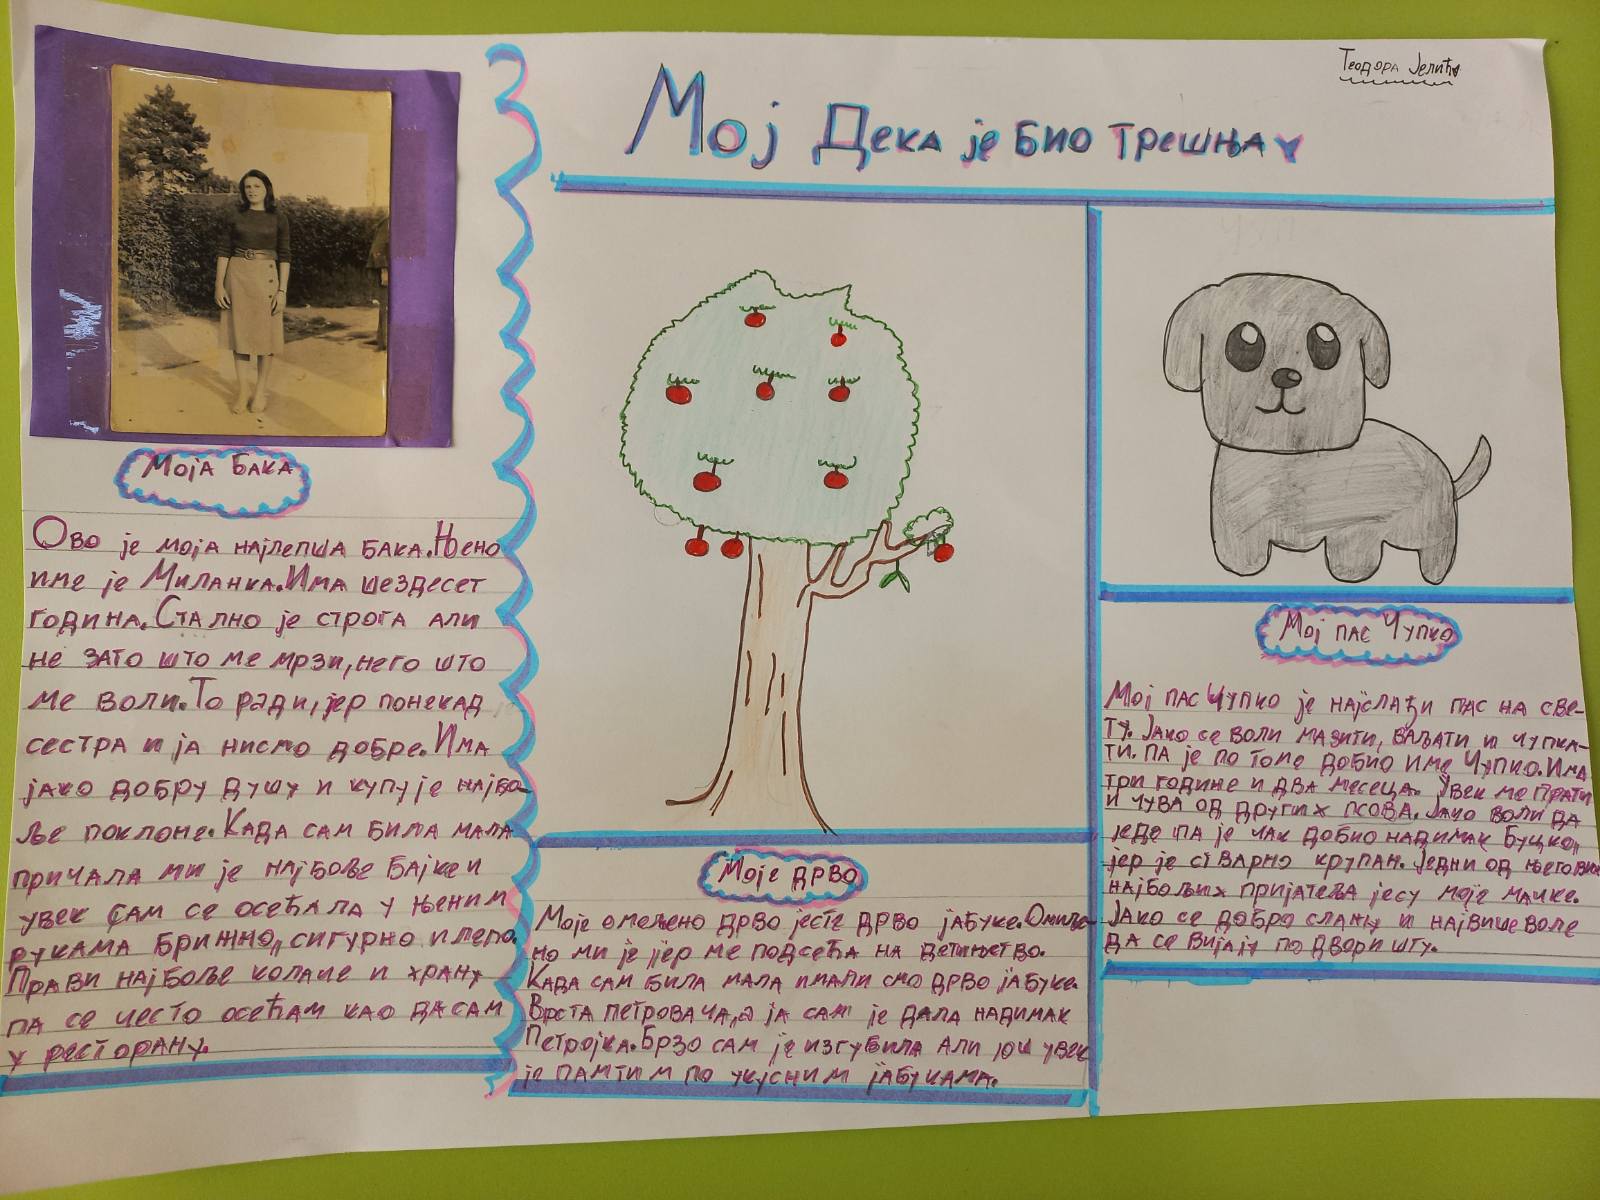 Теодора Јелић
Мој Дека је био трешња
Моја бака
Ово је моја најлепша бака. Њено
име је Миланка. Има шездесет
година. Стално је строга али
не зато што ме мрзи, него што
ме воли. То ради, јер понекад
сестра и ја нисмо добре. Има
јако добру душу и купује најбо-
ље поклоне. Када сам била мала
причала ми је најбоље бајке и
увек сам се осећала у њеним
рукама брижно, сигурно и лепо.
Прави најбоље колаче и храну
па се често осећам као да сам
у ресторану.
Моје дрво
Моје омељено дрво јесте дрво јабуке. Омиље-
но ми је јер ме подсећа на детињство.
Када сам била мала имали смо дрво јабуке.
Врста петровача, а ја сам је дала надимак
Петројка. Брзо сам је изгубила али још увек
је памтим по укусним јабукама.
Мој пас Чупко
Мој пас Чупко је најслађи пас на све-
ту. Јако се воли мазити, ваљати и чупка-
ти. Па је по томе добио име Чупко. Има
три године и два месеца. Увек ме прати
и чува од других псова. Јако воли да
једе па је чак добио надимак Буцко,
јер је стварно крупан. Једни од његових
најбољих пријатеља јесу моје мачке.
Јако се добро слажу и највише воле
да се вијају по дворишту.